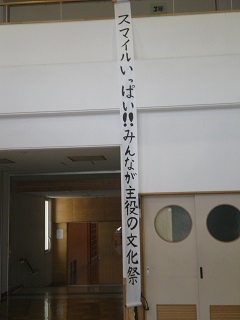 スマイルいっぱい!!みんなが主役の文化祭